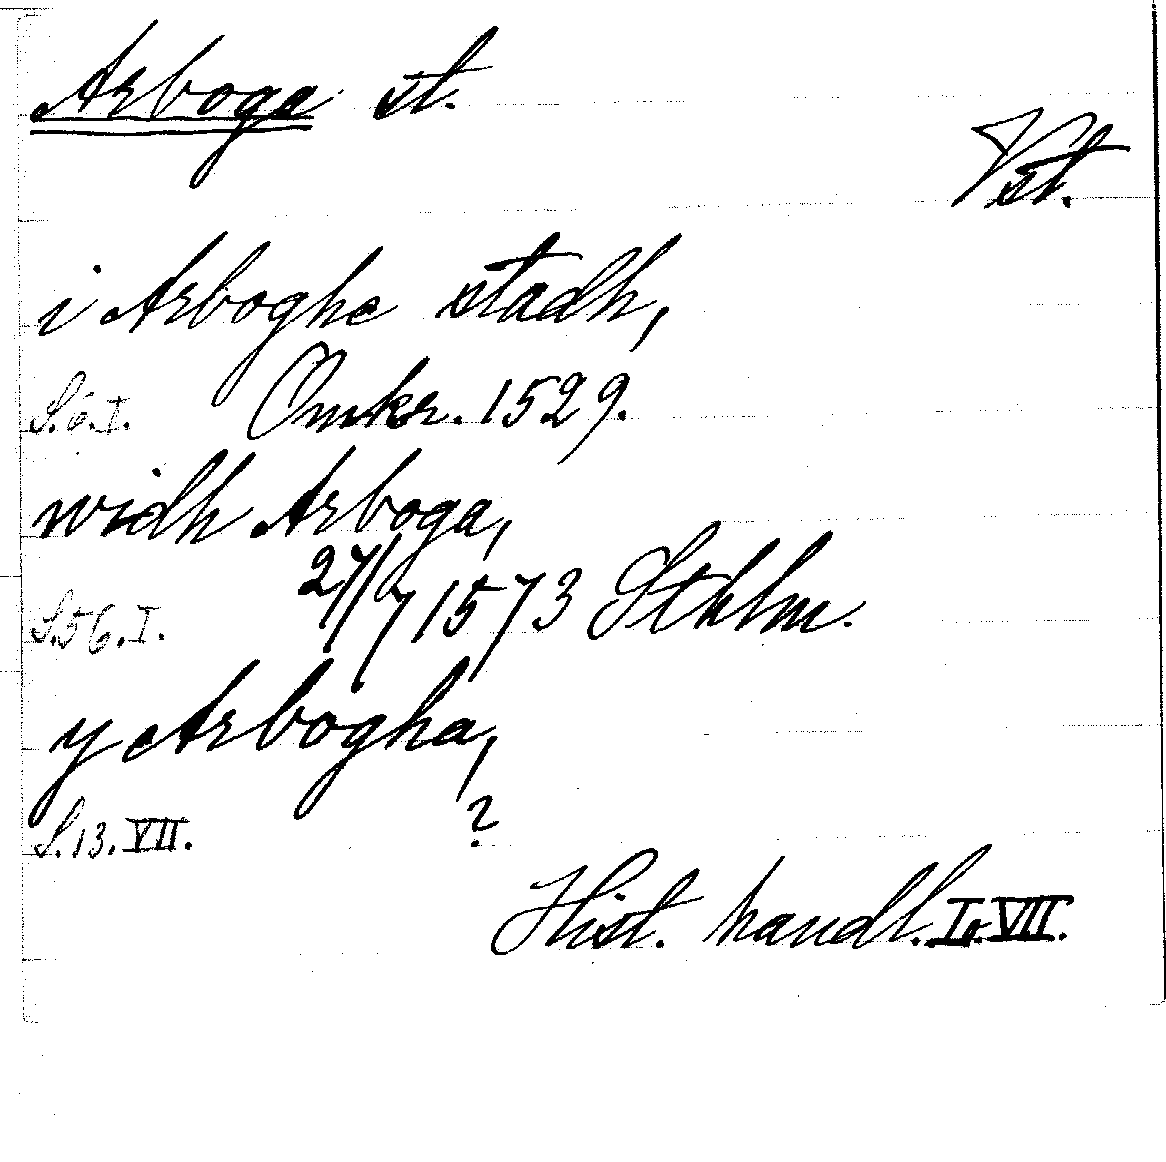 Arboga st.
Vst.
i Arboghe stadh,
S. 6. I. Omkr. 1529.
widh Arboga,
S. 56. I. 27/7 1573 Sthlm.
y Arbogha,
S. 13. VII. ?
Hist. handl. I o. VII.